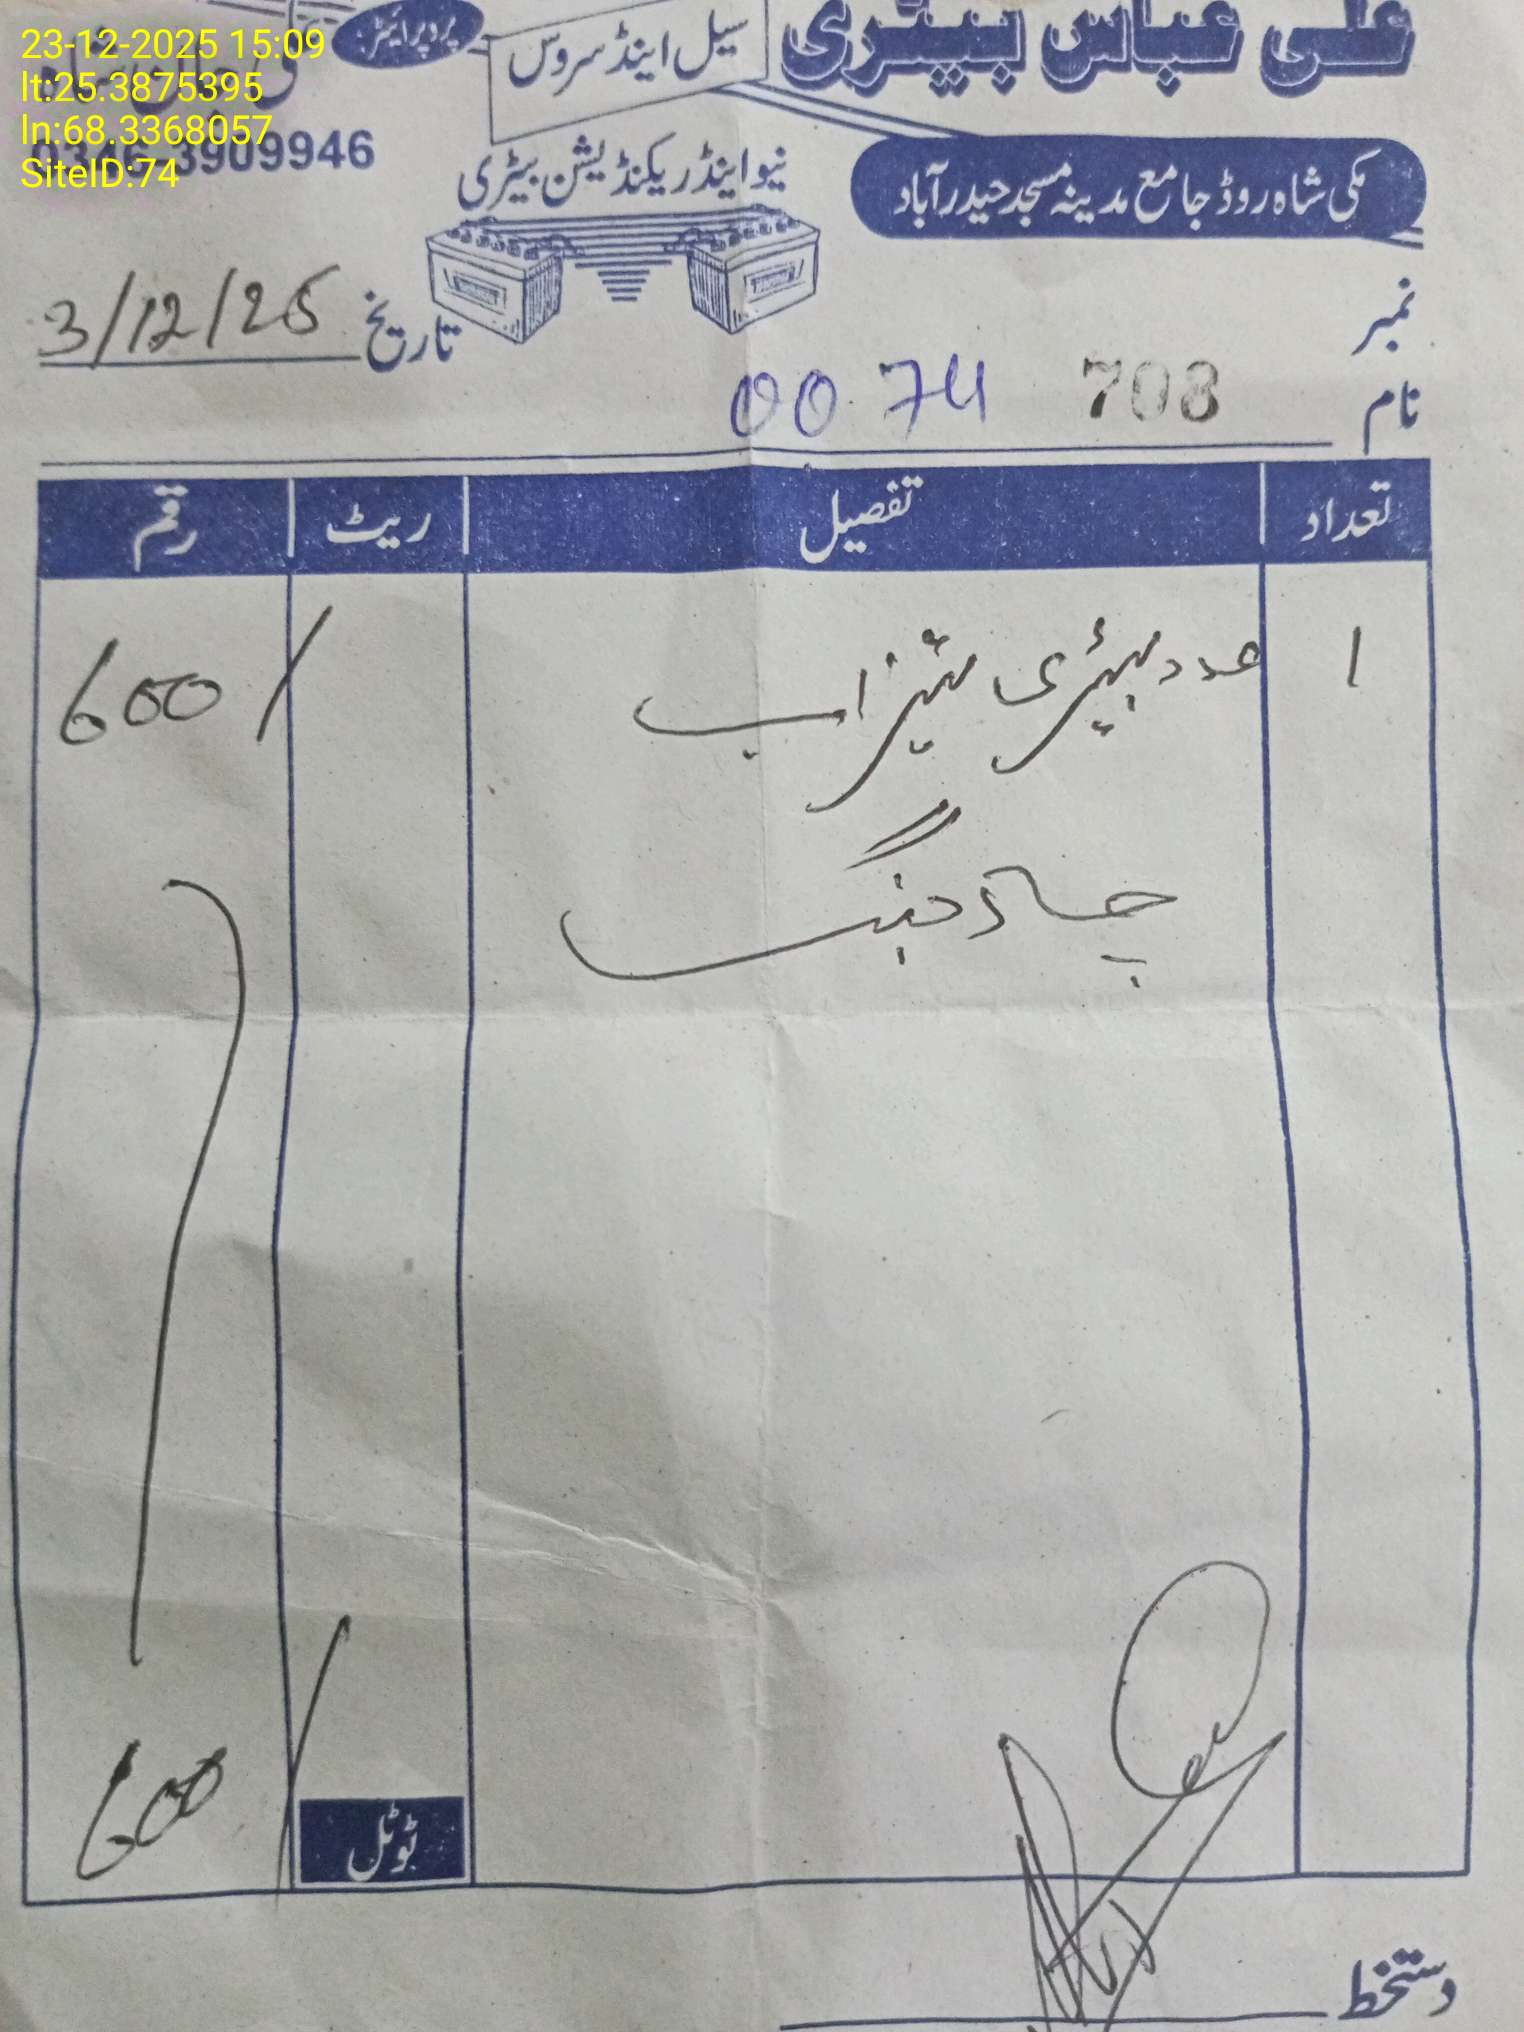 23-12-2025 15:09
lt:25.3875395
ln:68.3368057
SiteID:74
علی عباس بیٹری
سیل اینڈ سروس
پروپرائیٹر:
0346-3909946
نیو اینڈ ریکنڈیشن بیٹری
مکی شاہ روڈ جامع مدینہ مسجد حیدرآباد
نمبر
تاریخ 3/12/25
نام 708 0074
تعداد تفصیل ریٹ رقم
1 عدد بیٹری تیزاب 600/
چارجنگ
ٹوٹل 600/
دستخط